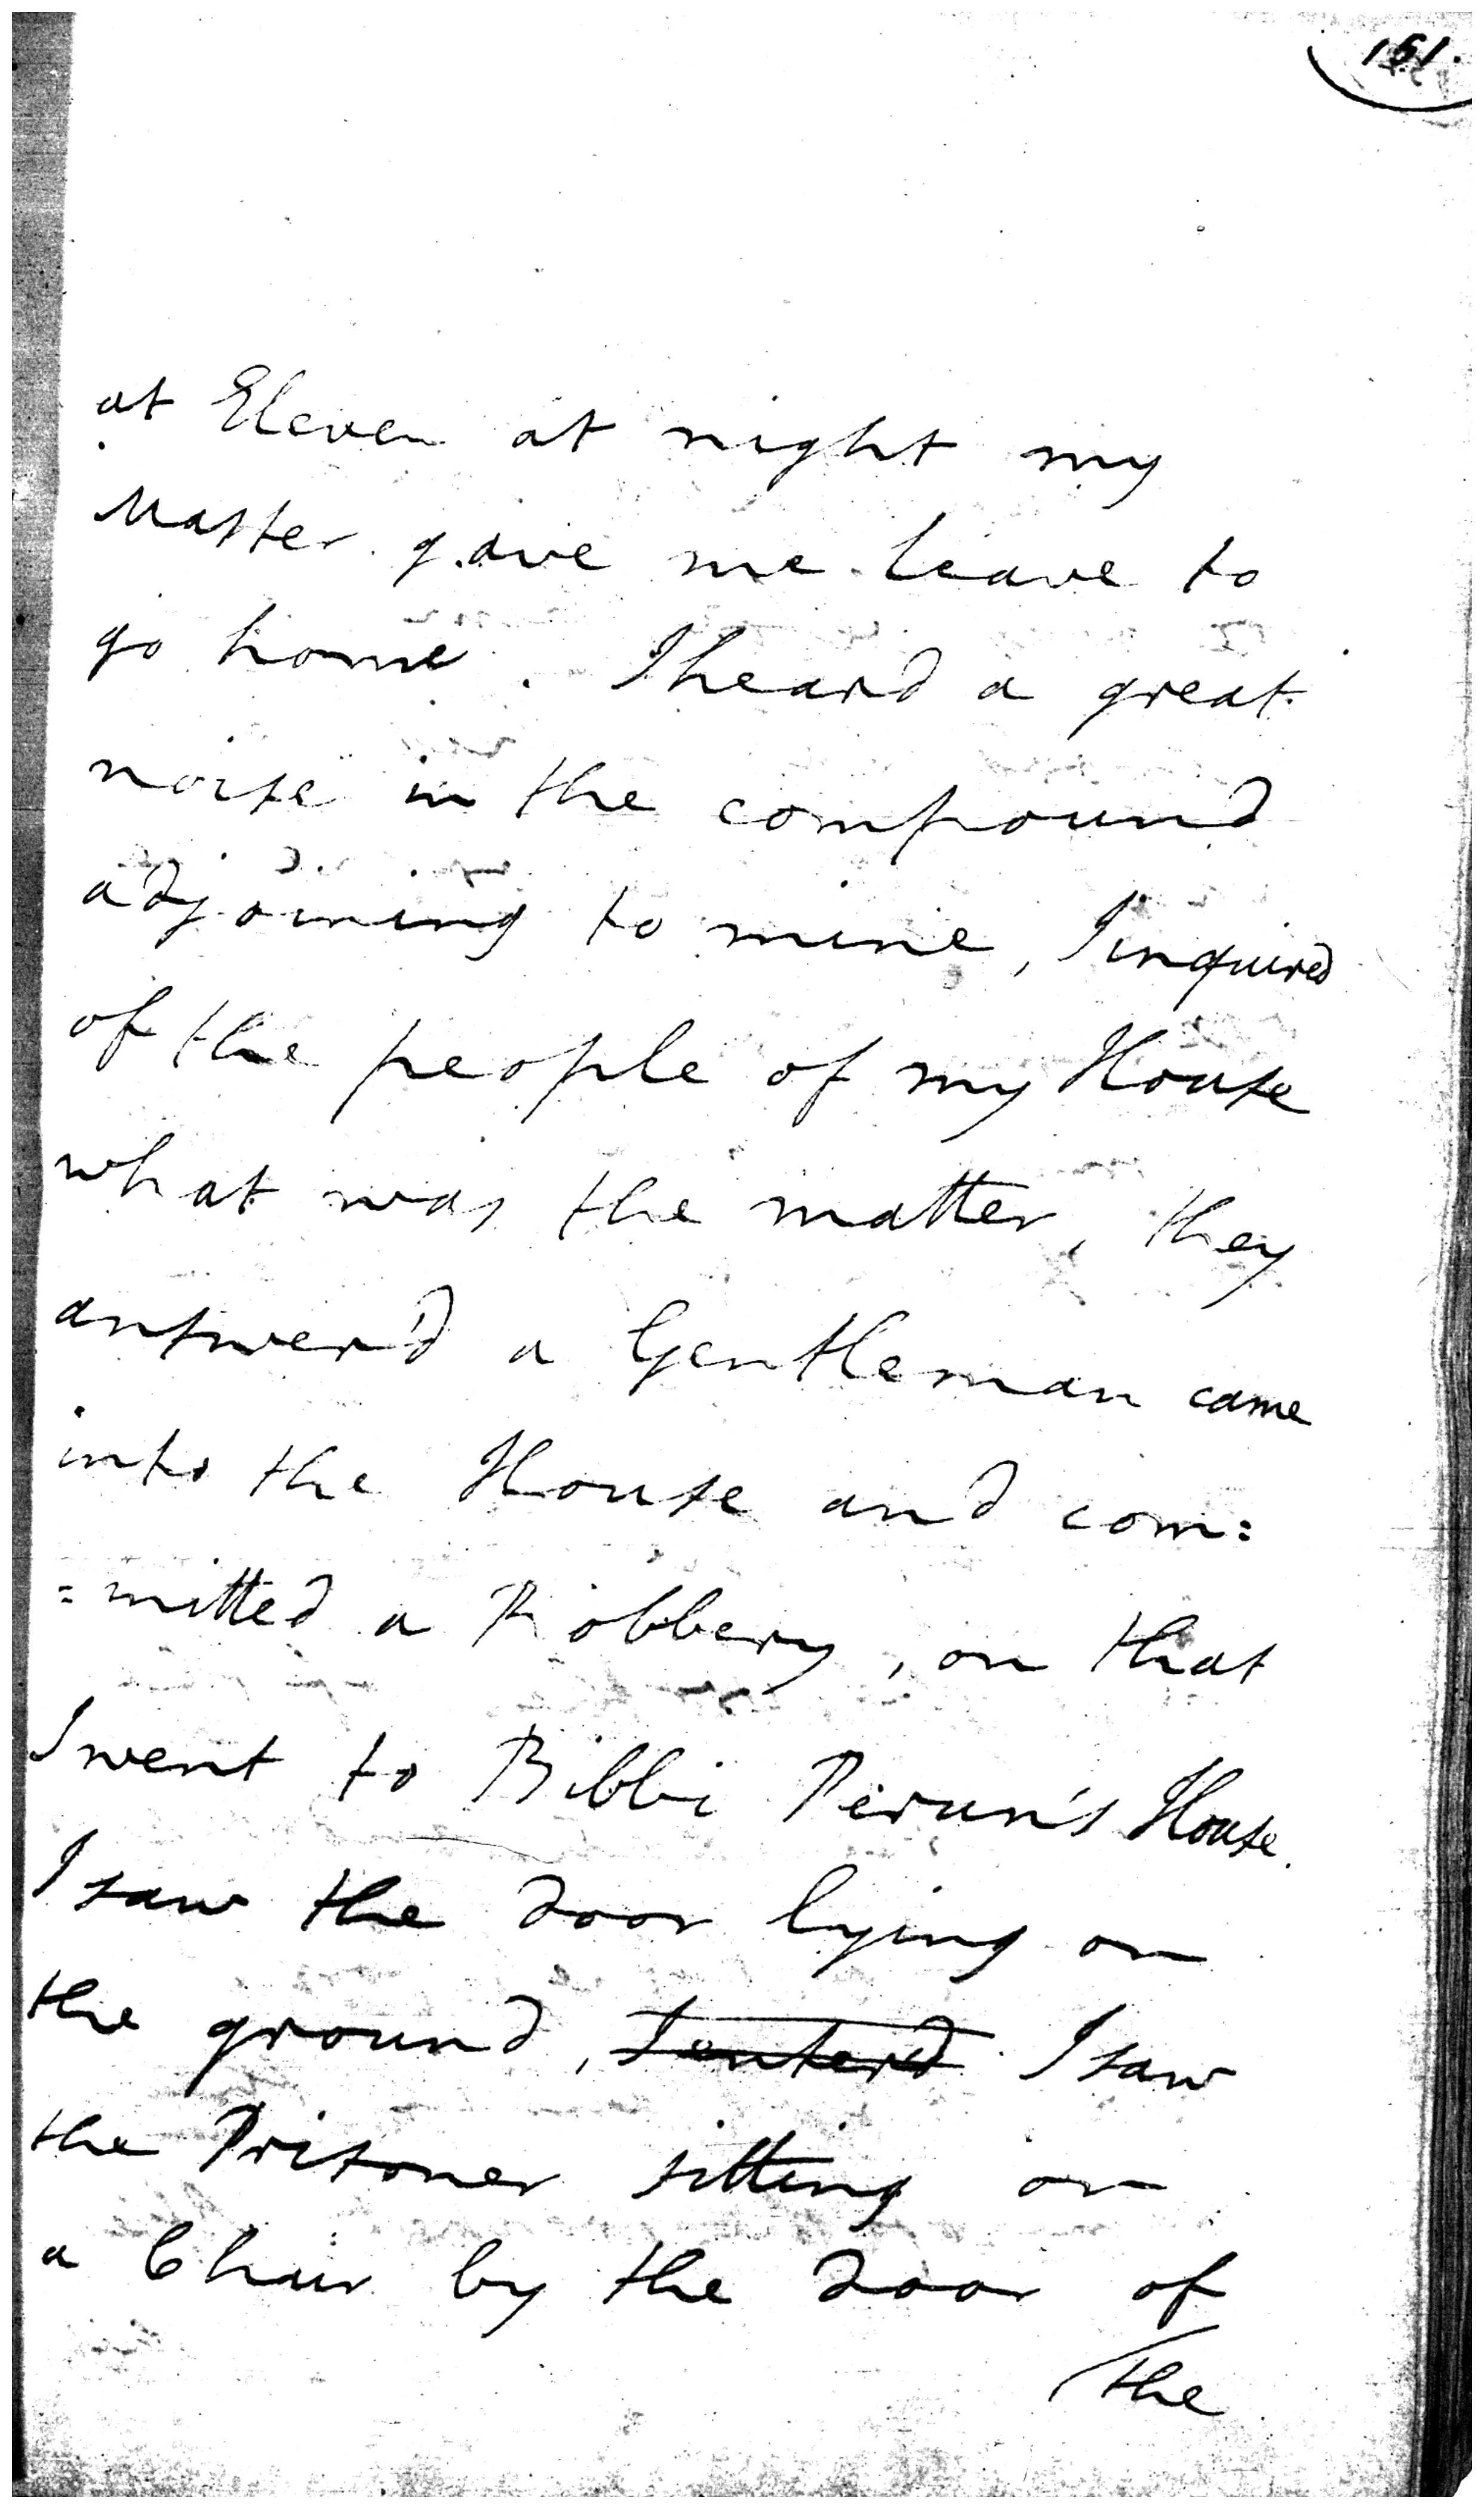 151.
at Eleven at night my
Master gave me leave to
go home. I heard a great
noise in the compound
adjoining to mine, I inquired
of the people of my House
what was the matter, they
answer'd a Gentleman came
into the House and com:
=mitted a Robbery, on that
I went to Bibbi Perun's House.
I saw the door lying on
the ground, I enter'd I saw
the Prisoner sitting on
a Chair by the door of
the